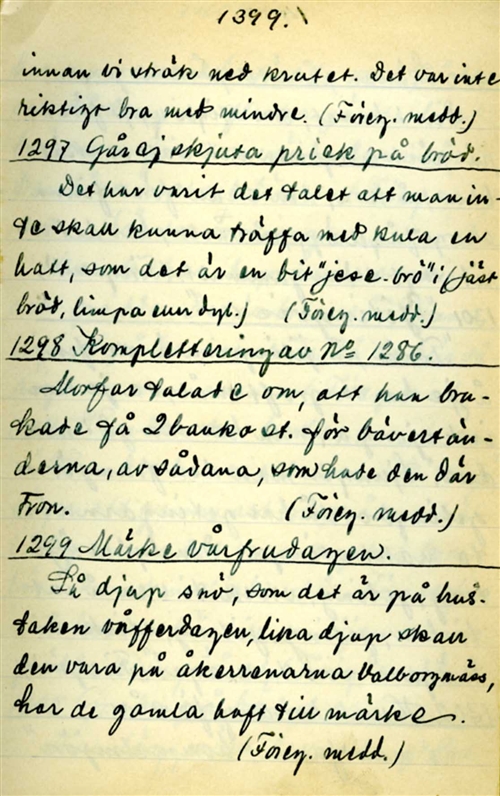 1399.
innan vi stråk ned krutet. Det var inte
riktigt bra med mindre. (Föreg. medd.)
1297 Går ej skjuta prick på bröd.
Det har varit det talet att man in-
te skall kunna träffa med kula en
hatt, som det är en bit "jese-brö" i (jäst
bröd, limpa eller dyl.) (Föreg. medd.)
1298 Komplettering av No 1286.
Morfar talade om, att han bru-
kade få 2 banko st. för bävertän-
derna, av sådana, som hade den där
Fron. (Föreg. medd.)
1299 Märke vårfrudagen.
Så djup snö, som det är på hus-
taken våfferdagen, lika djup skall
den vara på åkerrenarna Valborgmäss,
har de gamla haft till märke.
(Föreg. medd.)